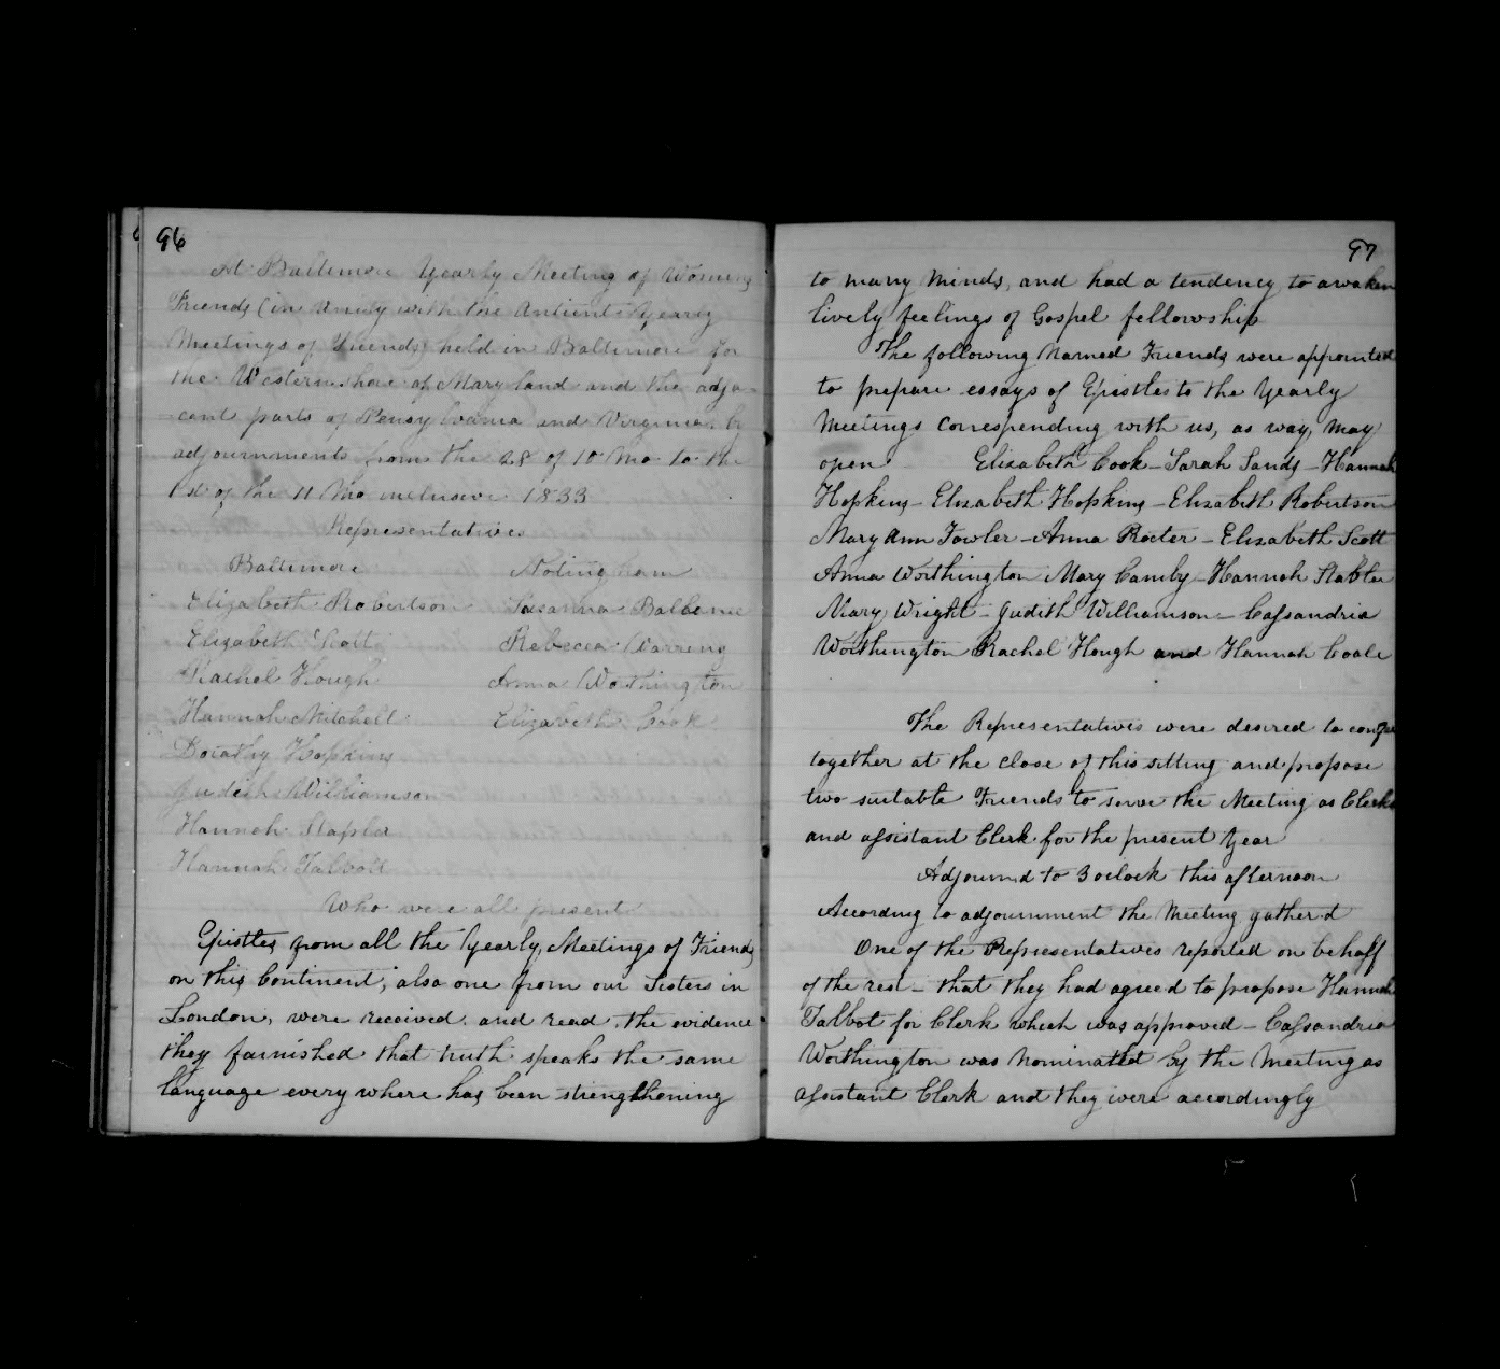 96
At Baltimore Yearly Meeting of Womens
Friends (in Unity with the Antient Yearly
Meetings of Friends) held in Baltimore for
the Western shore of Maryland and the adja-
cent parts of Pensylvania and Virginia by
adjournments from the 28 of 10 Mo to the
1st of the 11 Mo inclusive 1833
Representatives
Baltimore
Elizabeth Robertson
Elizabeth Scott
Rachel Hough
Hannah Mitchell
Dorathy Hopkins
Judith Williamson
Hannah Stapler
Hannah Talbott
Notingham
Susanna Balbenie
Rebecca Warreng
Anna Worthington
Elizabeth Cook
Who were all present
Epistles from all the Yearly Meetings of Friends
on this Continent; also one from our Sisters in
London, were received and read. the evidence
they furnished that truth speaks the same
language every where has been strengthening
97
to many minds, and had a tendency to awaken
lively feelings of Gospel fellowship
The following Named Friends were appointed
to prepare essays of Epistles to the Yearly
Meetings Correspending with us, as way, may
open Elizabeth Cook - Sarah Sands - Hannah
Hopkins - Elizabeth Hopkins - Elizabeth Robertson
Mary Ann Fowler - Anna Procter - Elizabeth Scott
Anna Worthington Mary Camby - Hannah Stabler
Mary Wright - Judith Williamson - Cassandria
Worthington Rachel Hough and Hannah Coale
The Representatives were desired to confer
together at the close of this sitting and propose
two suitable Friends to serve the Meeting as Clerks
and assistant Clerk for the present Year
Adjournd to 3 oclock this afternoon
According to adjournment the Meeting gather'd
One of the Representatives reported on behalf
of the rest - that they had agreed to propose Hannah
Talbot for Clerk which was approved - Cassandria
Worthington was Nominatted by the Meeting as
assistant Clerk and they were accordingly